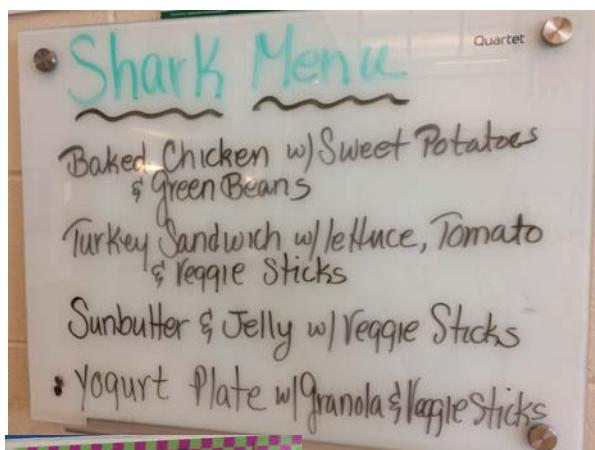 Quartet
Shark Menu
Baked Chicken w/ Sweet Potatoes
& Green Beans
Turkey Sandwich w/ lettuce, Tomato
& Veggie Sticks
Sunbutter & Jelly w/ Veggie Sticks
• Yogurt Plate w/ Granola & Veggie Sticks